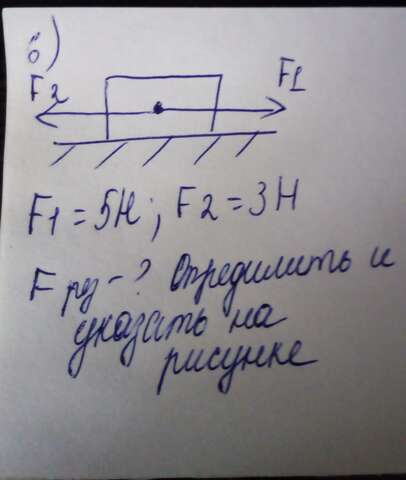 б)
F2 F1
F1 = 5Н; F2 = 3Н
F рез - ? Опредилить и
указать на
рисунке